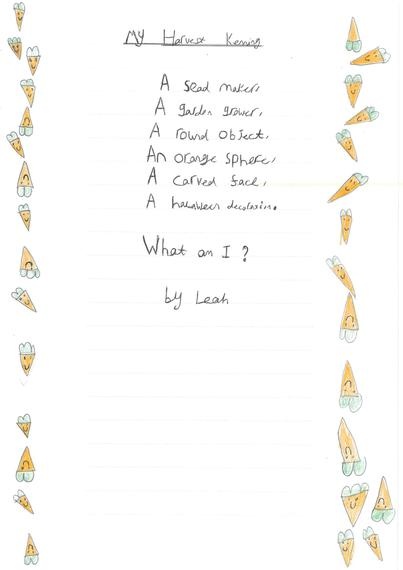 My Harvest Kenning
A sead maker,
A garden grower,
A round object,
An orange sphere,
A carved face,
A
What am I ?
by Leah